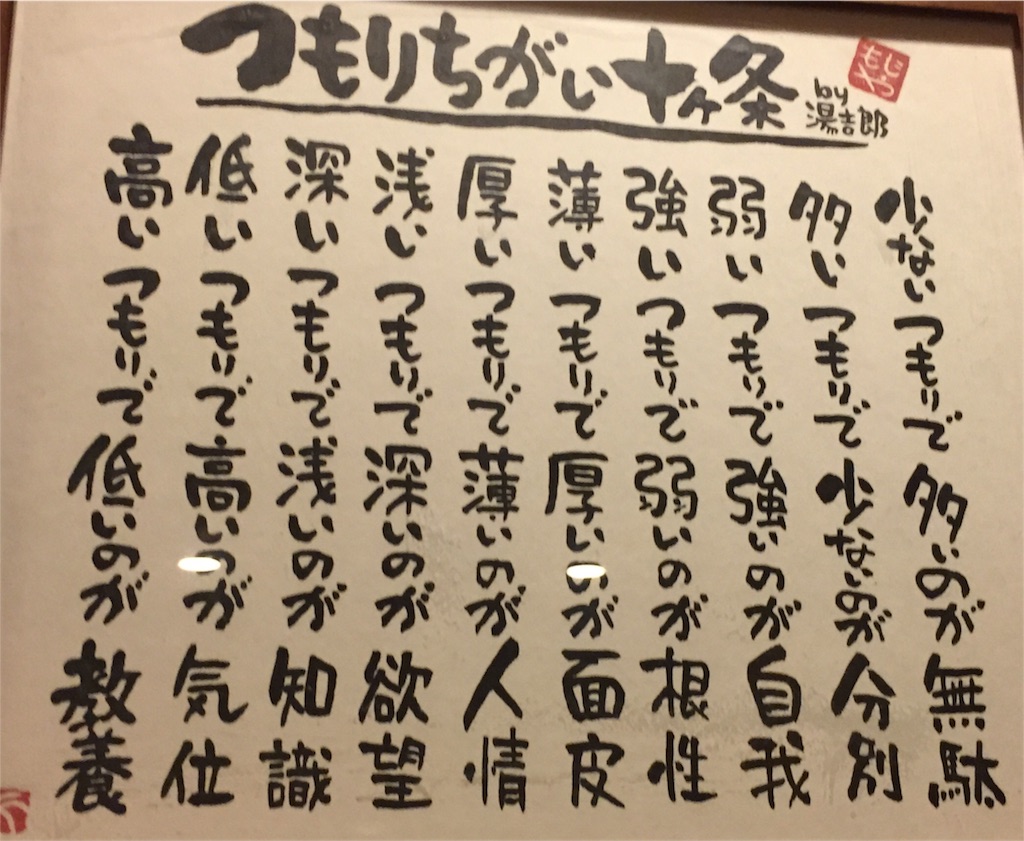 つもりちがい十ヶ条
by
湯吉郎
高いつもりで低いのが教養
低いつもりで高いのが気位
深いつもりで浅いのが知識
浅いつもりで深いのが欲望
厚いつもりで薄いのが人情
薄いつもりで厚いのが面皮
強いつもりで弱いのが根性
弱いつもりで強いのが自我
多いつもりで少ないのが分別
少ないつもりで多いのが無駄